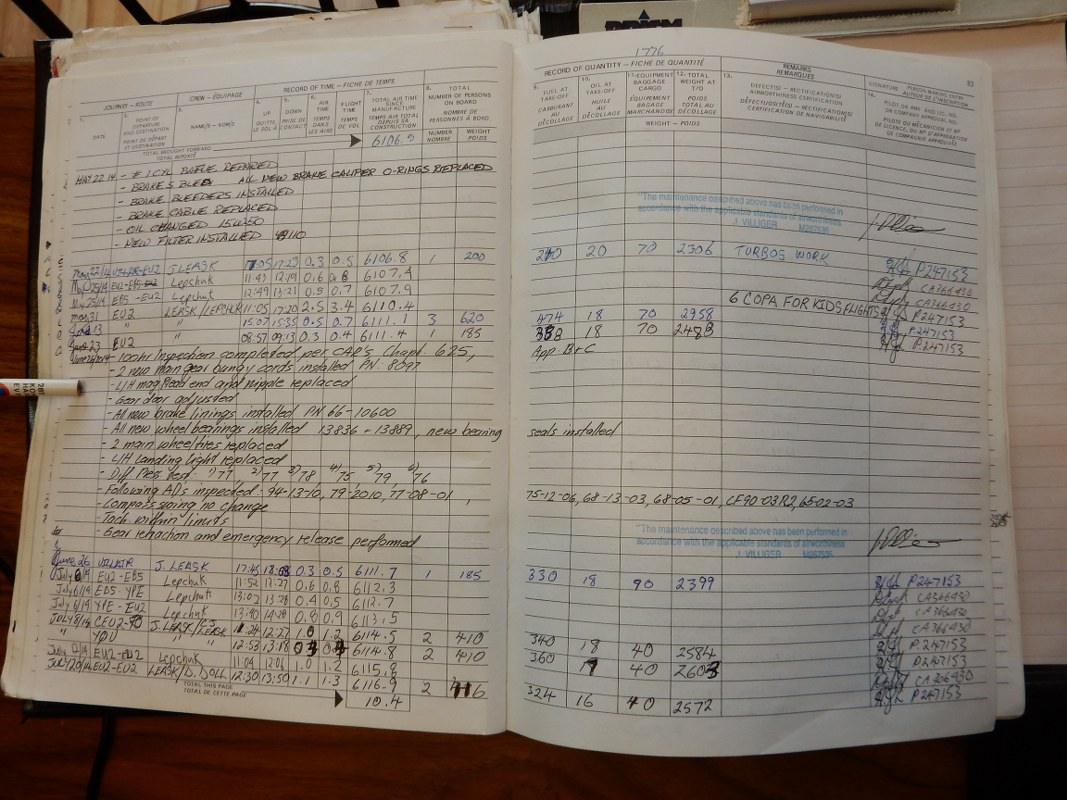 1776
83
JOURNEY - ROUTE
CREW - ÉQUIPAGE
RECORD OF TIME - FICHE DE TEMPS
TOTAL NUMBER OF PERSONS ON BOARD
NOMBRE DE PERSONNES À BORD
DATE
POINT OF DEPARTURE AND DESTINATION
POINT DE DÉPART ET DESTINATION
NAME/S - NOM/S
UP
DOWN
AIR TIME
FLIGHT TIME
TEMPS DE VOL
TOTAL AIR TIME SINCE MANUFACTURE
TEMPS AIR TOTAL DEPUIS CONSTRUCTION
NUMBER NOMBRE
WEIGHT POIDS
TOTAL BROUGHT FORWARD
TOTAL REPORTÉ
6106.5
MAY 22 14 - #1 CYL BAFFLE REPAIRED
- BRAKES BLED ALL NEW BRAKE CALIPER O-RINGS REPLACED
- BRAKE BLEEDERS INSTALLED
- BRAKE CABLE REPLACED
- OIL CHANGED 15W50
- NEW FILTER INSTALLED 48110
J. LEASK 17:23 0.3 0.5 6106.8 1 200
Lepchuk 11:43 12:19 0.6 0.8 6107.4
May 25/14 EBS - EU2 Lepchuk 12:49 13:21 0.5 0.7 6107.9
May 31 EU2 LEASK/LEPCHUK 11:05 17:20 2.5 3.4 6110.4
13 " " 15:07 15:35 0.5 0.7 6111.1 3 620
23 EU2 08:57 09:13 0.3 0.4 6111.4 1 185
- 100hr Inspection completed per CAR's Chapt. 625,
- 2 new main gear bungy cords installed PN. 8097
- L/H mag lead end and nipple replaced
- Gear door adjusted
- All new brake linings installed PN 66-10600
- All new wheel bearings installed 13836 - 13889, new bearing
- 2 main wheel ties replaced
- L/H Landing light replaced
- Diff Press Test 1) 77 2) 77 3) 78 4) 75 5) 79 6) 76
- Following ADs inspected: 94-13-10, 79-2010, 77-08-01,
- Compass swing no change
- Tach within limits
- Gear retraction and emergency release performed
June 26 J. LEASK 17:45 0.3 0.5 6111.7 1 185
July 6/14 EU2 - EBS Lepchuk 11:52 12:27 0.6 0.8 6112.3
July 6/14 EBS - YPE Lepchuk 13:02 0.4 0.5 6112.7
July 6/14 YPE - EU2 Lepchuk 0.8 0.9 6113.5
JULY 8/14 J. LEASK 12:27 1.0 1.2 6114.5 2 410
" YOU 12:53 13:18 6114.8 2 410
EU2 - EU2 Lepchuk 11:04 12:06 1.0 1.2 6115.8
JULY 20/14 EU2-EU2 LEASK/D. DOLL 12:30 13:50 1.1 1.3 6116.9 2
TOTAL THIS PAGE
TOTAL DE CETTE PAGE
10.4
RECORD OF QUANTITY - FICHE DE QUANTITÉ
REMARKS
REMARQUES
FUEL AT TAKE-OFF
CARBURANT AU DÉCOLLAGE
OIL AT TAKE-OFF
HUILE AU DÉCOLLAGE
EQUIPMENT BAGGAGE CARGO
ÉQUIPEMENT BAGAGE MARCHANDISE
TOTAL WEIGHT AT T/O
POIDS TOTAL AU DÉCOLLAGE
WEIGHT - POIDS
"The maintenance described above has been performed in
accordance with the applicable standards of airworthiness
J. VILLIGER
240 20 70 2306 TURBOS WORK P.247153
CA366430
CA366430
6 COPA FOR KIDS FLIGHTS
474 18 70 2958 P.247153
18 70 P.247153
App. B+C
seals installed
75-12-06, 68-13-03, 68-05-01, CF90-03R2, 6502-03
"The maintenance described above has been performed in
accordance with the applicable standards of airworthiness
J. VILLIGER
330 18 90 2399 P247153
CA366430
CA366430
CA366430
340 18 40 2584 P.247153
360 40 P.247153
CA366430
324 16 40 2572 P247153